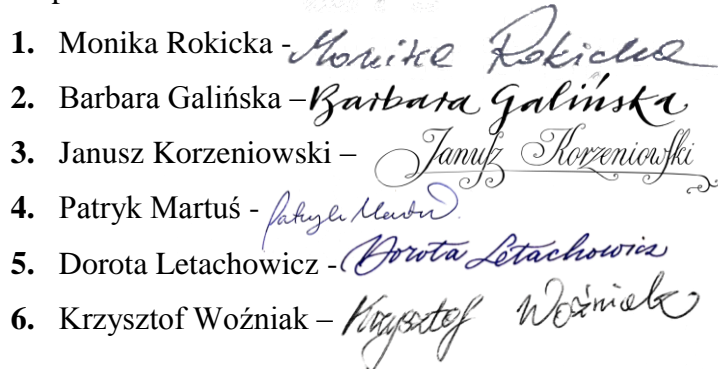 1. Monika Rokicka - Monika Rokicka
2. Barbara Galińska – Barbara Galińska
3. Janusz Korzeniowski – Janusz Korzeniowski
4. Patryk Martuś - Patryk
5. Dorota Letachowicz - Dorota Letachowicz
6. Krzysztof Woźniak – Krzysztof Woźniak